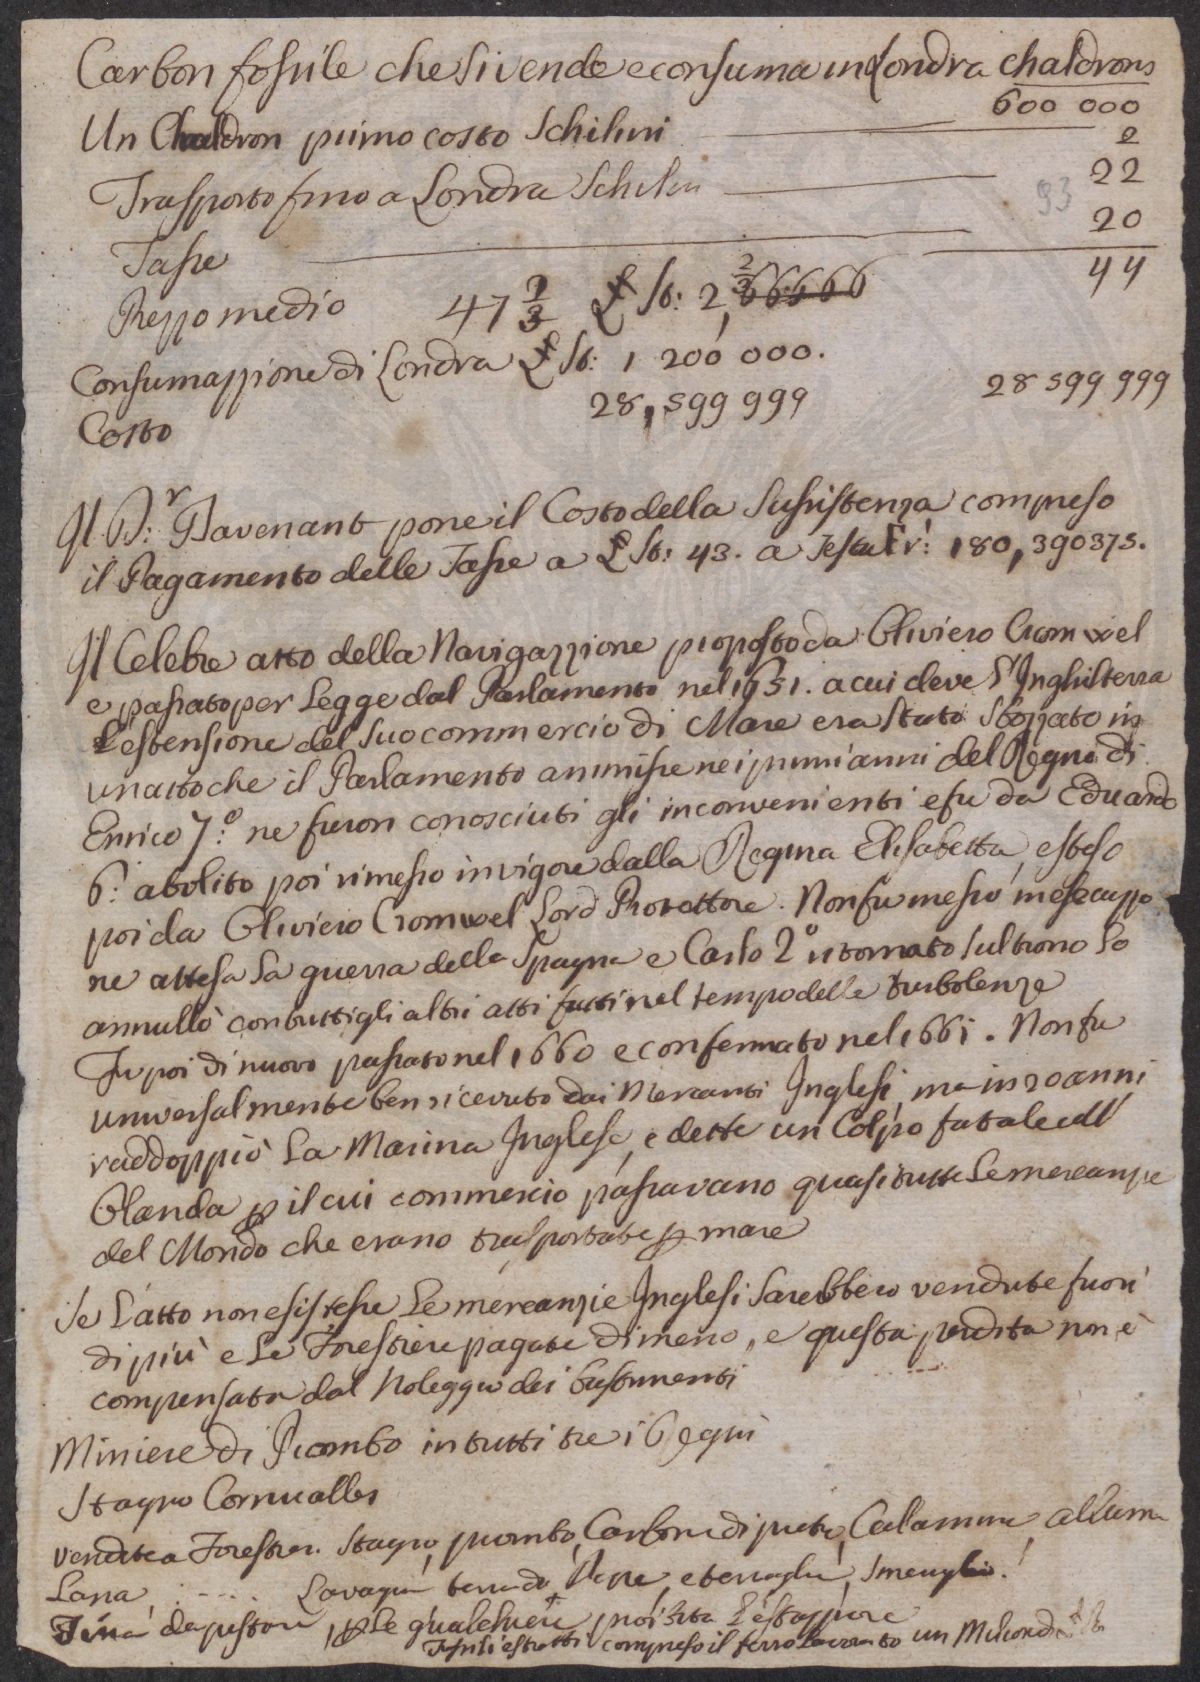 Carbon fossile che si vende e consuma in Londra chaldrons
600 000
Un Chaldron primo costo Schilini 2
Trasporto fino a Londra Schilin 22
93
Tasse 20
44
Prezzo medio 47 2/3 £ St: 2, 2/3 66666
Consumazzione di Londra £ St: 1 200 000.
Costo 28,599 999 28 599 999
Il D:r Davenant pone il Costo della Sussistenza compreso
il Pagamento delle Tasse a £ St: 43. a Testa 180,390375.
Il Celebre atto della Navigazzione proposto da Oliviero Cromwel
e passato per Legge dal Parlamento nel 1651. a cui deve l'Inghilterra
l'estensione del suo commercio di Mare era stato sbozzato in
un atto che il Parlamento ammisse nei primi anni del Regno di
Enrico 7.º ne furon conosciuti gli inconvenienti e fu da Eduardo
6.º abolito poi rimesso in vigore dalla Regina Elisabetta, esteso
poi da Oliviero Cromwel Lord Protettore. Non fu messo in esecuzzo
ne attesa la guerra della Spagna e Carlo 2º ritornato sul trono lo
annullò con tutti gli altri atti fatti nel tempo delle turbolenze
Fu poi di nuovo passato nel 1660 e confermato nel 1661. Non fu
universalmente ben ricevuto dai Mercanti Inglesi, ma in 20 anni
raddoppiò la Marina Inglese, e dette un Colpo fatale all
Olanda p il cui commercio passavano quasi tutte le mercanzie
del Mondo che erano trasportate p mare
Se l'atto non esistesse le mercanzie Inglesi sarebbero vendute fuori
di più e le Forestiere pagate di meno, e questa perdita non è
compensata dal Noleggio dei bastimenti
Miniere di Piombo in tutti tre i Regni
Stagno Cornualles
Vendite a Forestier. Stagno, piombo, Carbone di pietra, Calamina, allume
Lana, Lavagna
da p le qualchiere
estratti compreso il ferro lavorato un Milion di